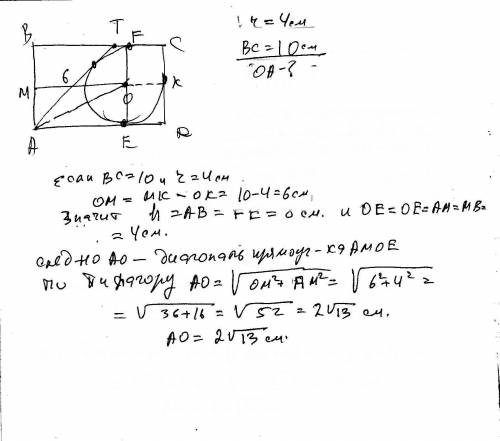 B T F C
M 6 O K
A E D
r = 4см
BC = 10см
OA - ?
если BC = 10 и r = 4см
OM = MK - OK = 10-4 = 6см
Значит h = AB = FE = 0 см. и OE = OE = AM = MB =
= 4см.
след-но AO - диагональ прямоуг-ка AMOE
по Пифагору AO = √OM² + AM² = √6² + 4² =
= √36+16 = √52 = 2√13 см.
AO = 2√13 см.